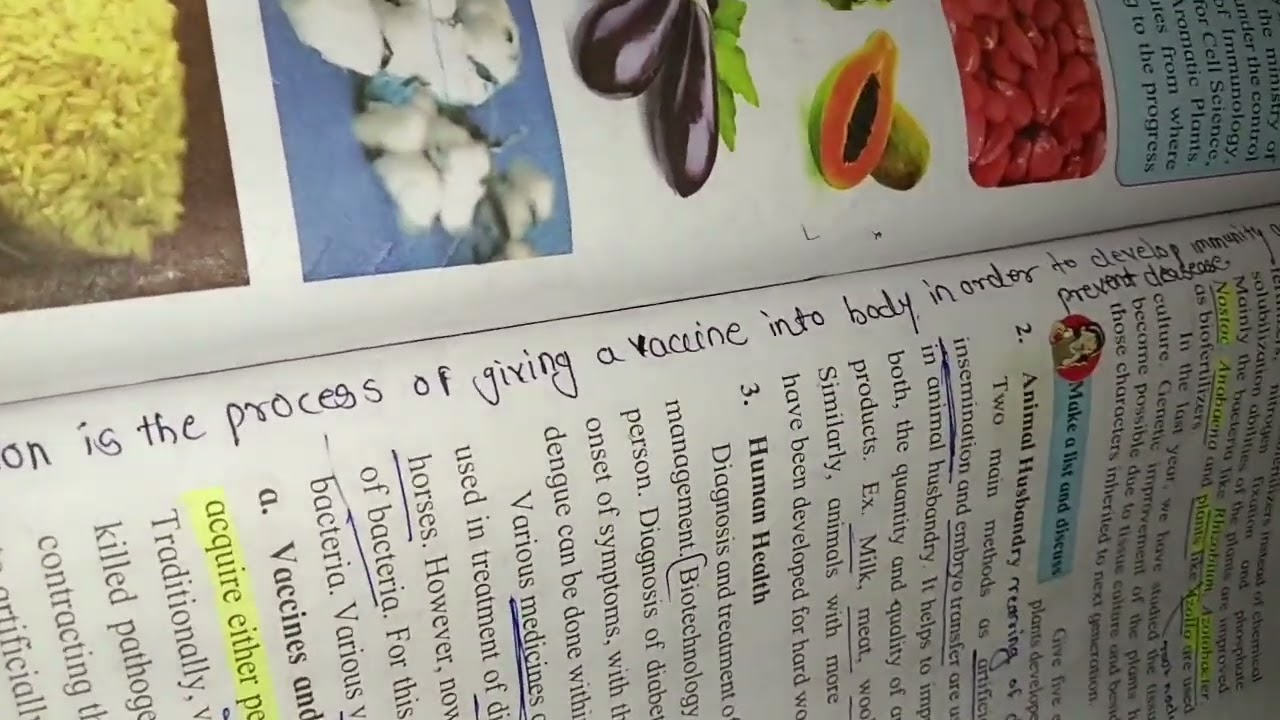 the ministry of
under the control
of Immunology,
for Cell Science,
Aromatic Plants.
utes from where
g to the progress
on is the process of giving a vaccine into body in order to develop immunity
prevent desease.
nitrogen fixation and phosphate
solubilization abilities of the plants are improved
Mainly the bacteria like Rhizobium, Azotobacter,
Nostoc, Anabaena and plants like Azolla are used
as biofertilizers
In the last year, we have studied the tissu
culture. Genetic improvement of the plants h
become possible due to tissue culture and
those characters inherited to next generation.
Make a list and discuss
Give five e
plants develope
2. Animal Husbandry rearing of
Two main methods as artific
insemination and embryo transfer are u
in animal husbandry. It helps to imp
both, the quantity and quality of a
products. Ex. Milk, meat, woo
Similarly, animals with more
have been developed for hard wo
3. Human Health
Diagnosis and treatment of
management. Biotechnology
person. Diagnosis of diabet
onset of symptoms, with th
dengue can be done withi
Various medicines
used in treatment of di
horses. However, now
of bacteria. For this
bacteria. Various v
a. Vaccines and
acquire either pe
Traditionally, v
killed pathoge
contracting th
artificially